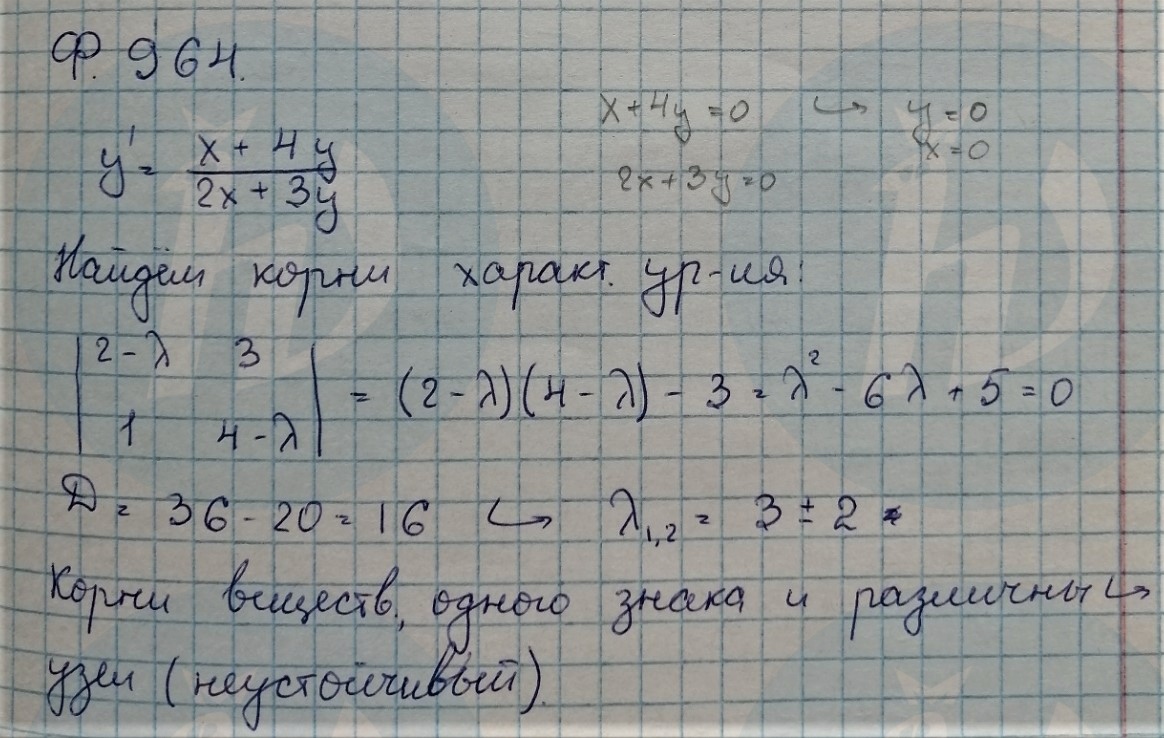 Ф. 964.
y' = (x + 4y)/(2x + 3y)
x + 4y = 0 ↪ y = 0
x = 0
2x + 3y = 0
Найдём корни характ. ур-ия:
|2-λ 3|
|1 4-λ| = (2-λ)(4-λ) - 3 = λ² - 6λ + 5 = 0
D = 36 - 20 = 16 ↪ λ₁,₂ = 3 ± 2
Корни веществ., одного знака и различны ↪
узел (неустойчивый).